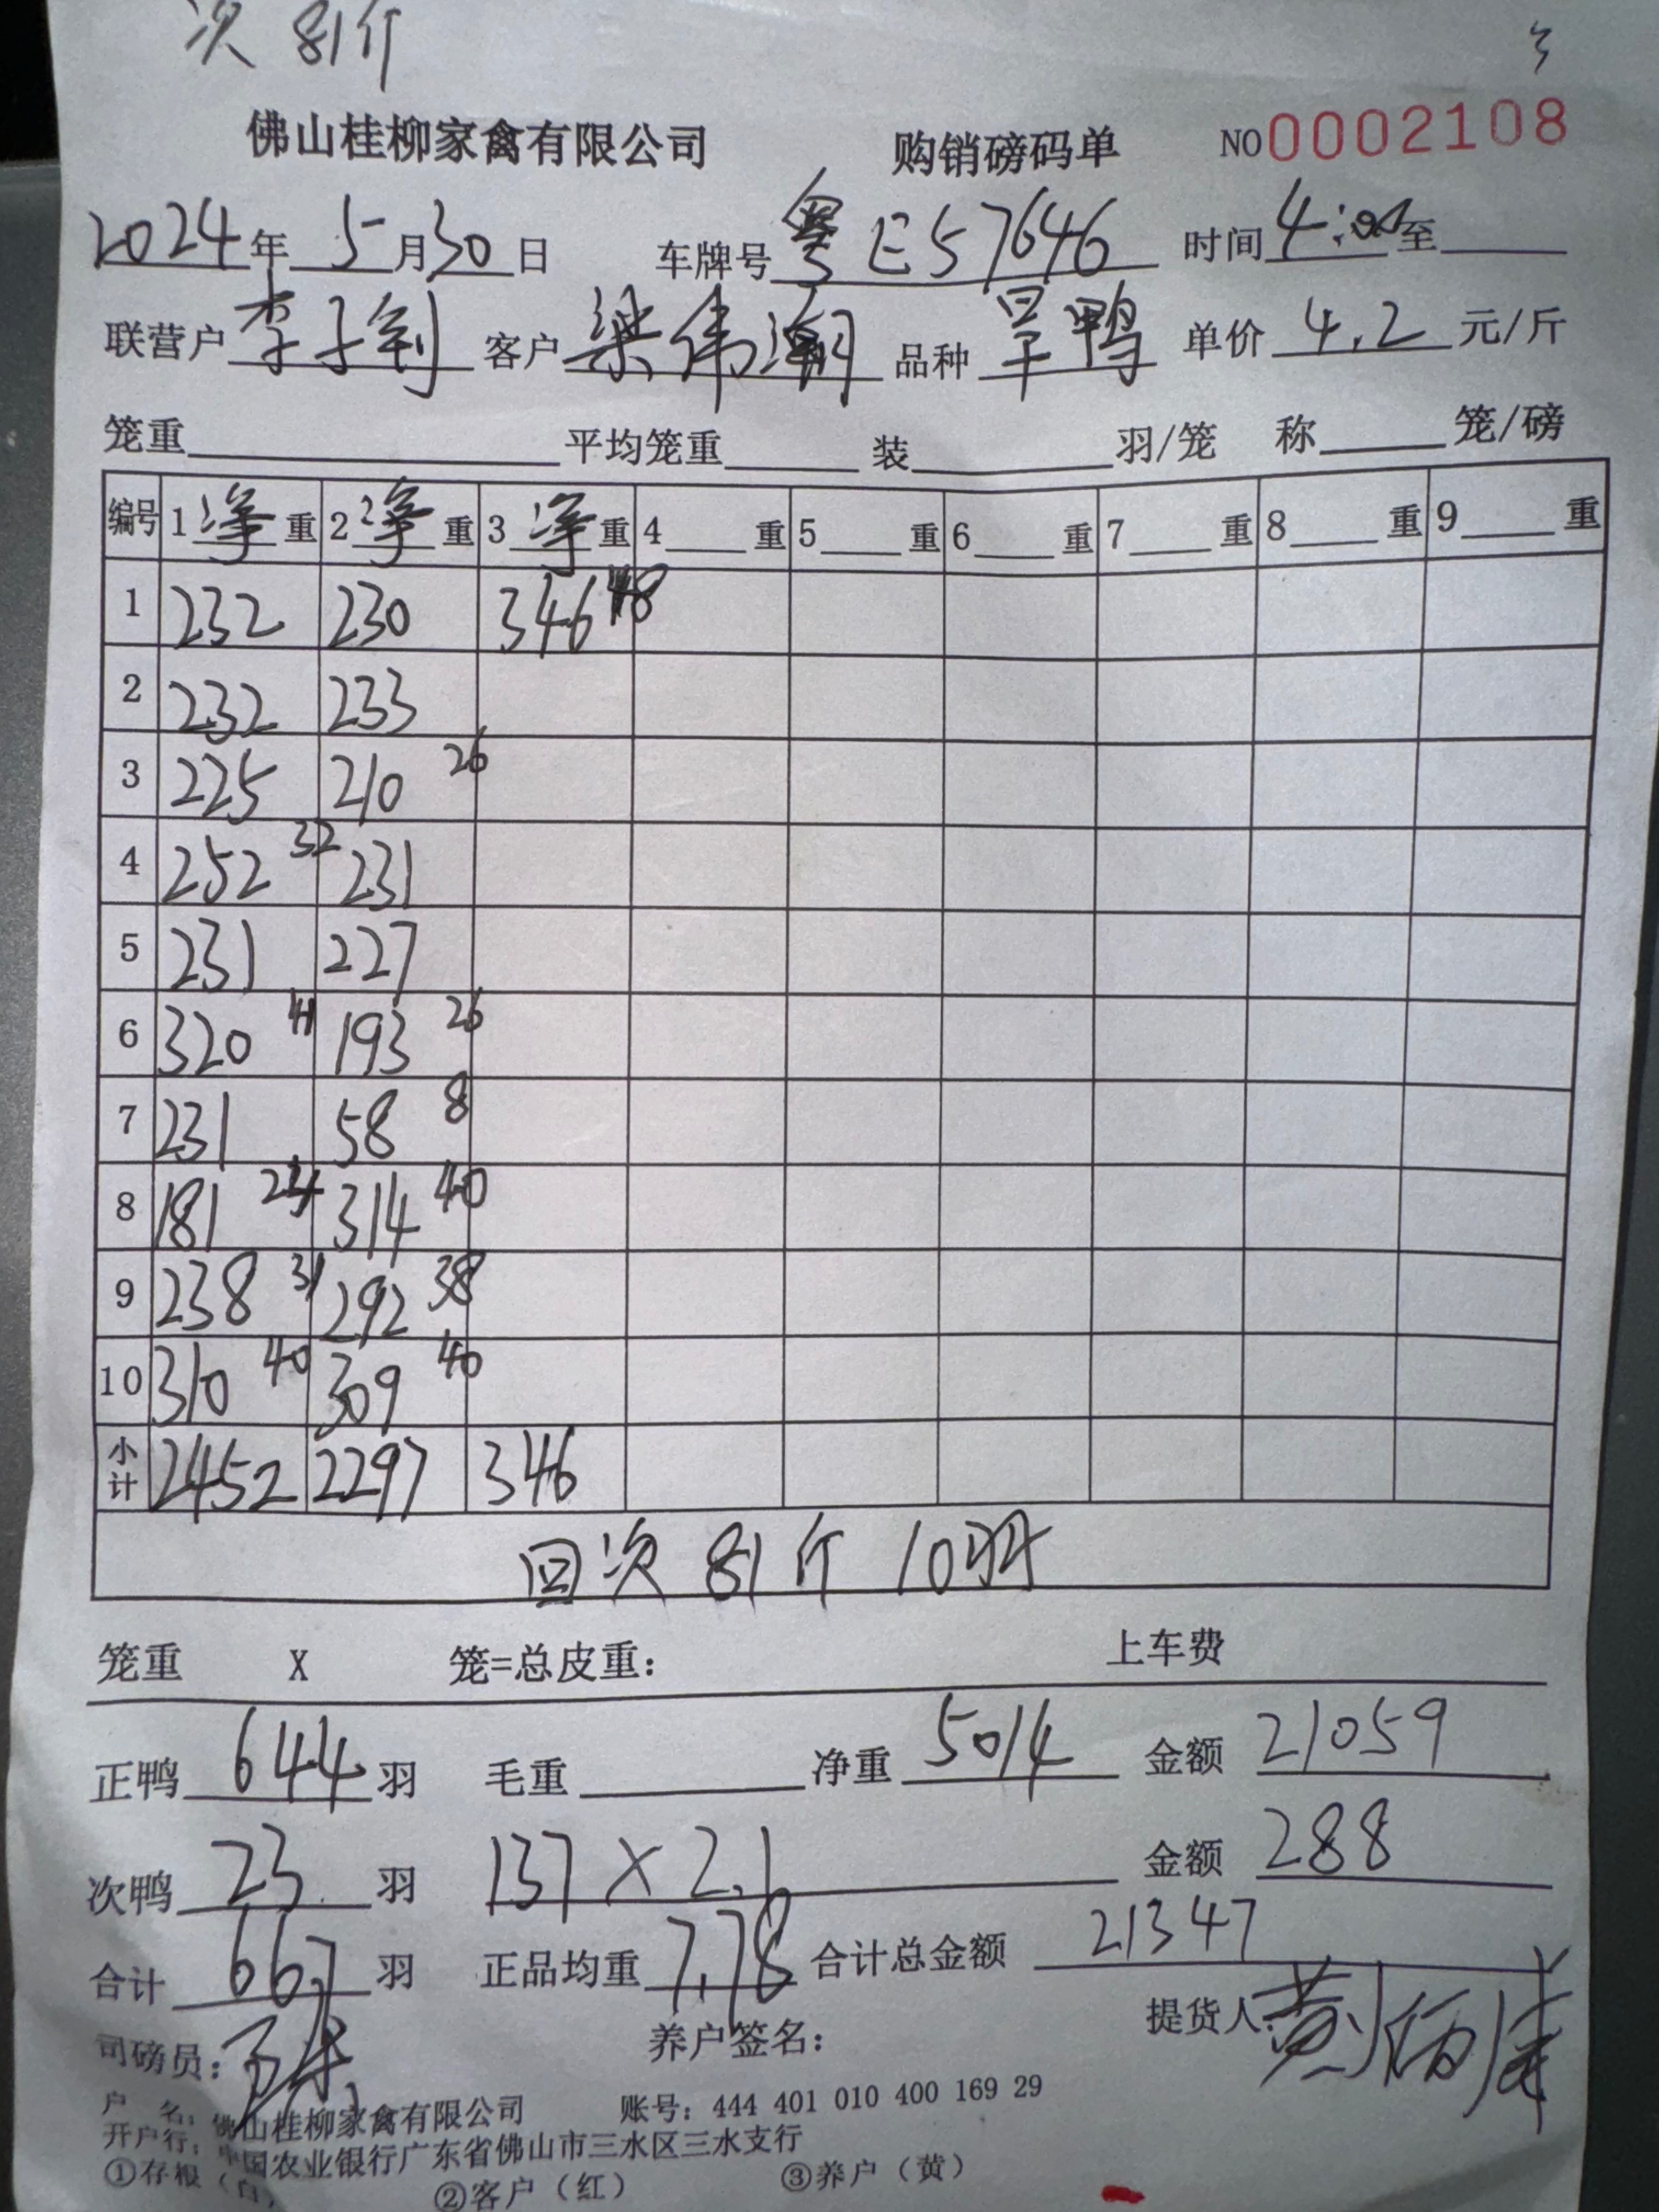 次 81斤 3
佛山桂柳家禽有限公司 购销磅码单 NO0002108
2024年 5月30日 车牌号 粤E57646 时间 4:00至
联营户 李子钊 客户 梁伟潮 品种 旱鸭 单价 4.2 元/斤
笼重 平均笼重 装 羽/笼 称 笼/磅
编号 1净重 2净重 3净重 4重 5重 6重 7重 8重 9重
1 232 230 346 48
2 232 233
3 225 210 26
4 252 32 231
5 231 227
6 320 41 193 26
7 231 58 8
8 181 24 314 40
9 238 31 292 38
10 310 40 309 40
小计 2452 2297 346
回次 81斤 10羽
笼重 X 笼=总皮重: 上车费
正鸭 644 羽 毛重 净重 5014 金额 21059
次鸭 23 羽 137×2.1 金额 288
合计 667 羽 正品均重 7.78 合计总金额 21347
司磅员: 养户签名: 提货人:
户 名: 佛山桂柳家禽有限公司 账号: 444 401 010 400 169 29
开户行: 中国农业银行广东省佛山市三水区三水支行
①存根（白） ②客户（红） ③养户（黄）